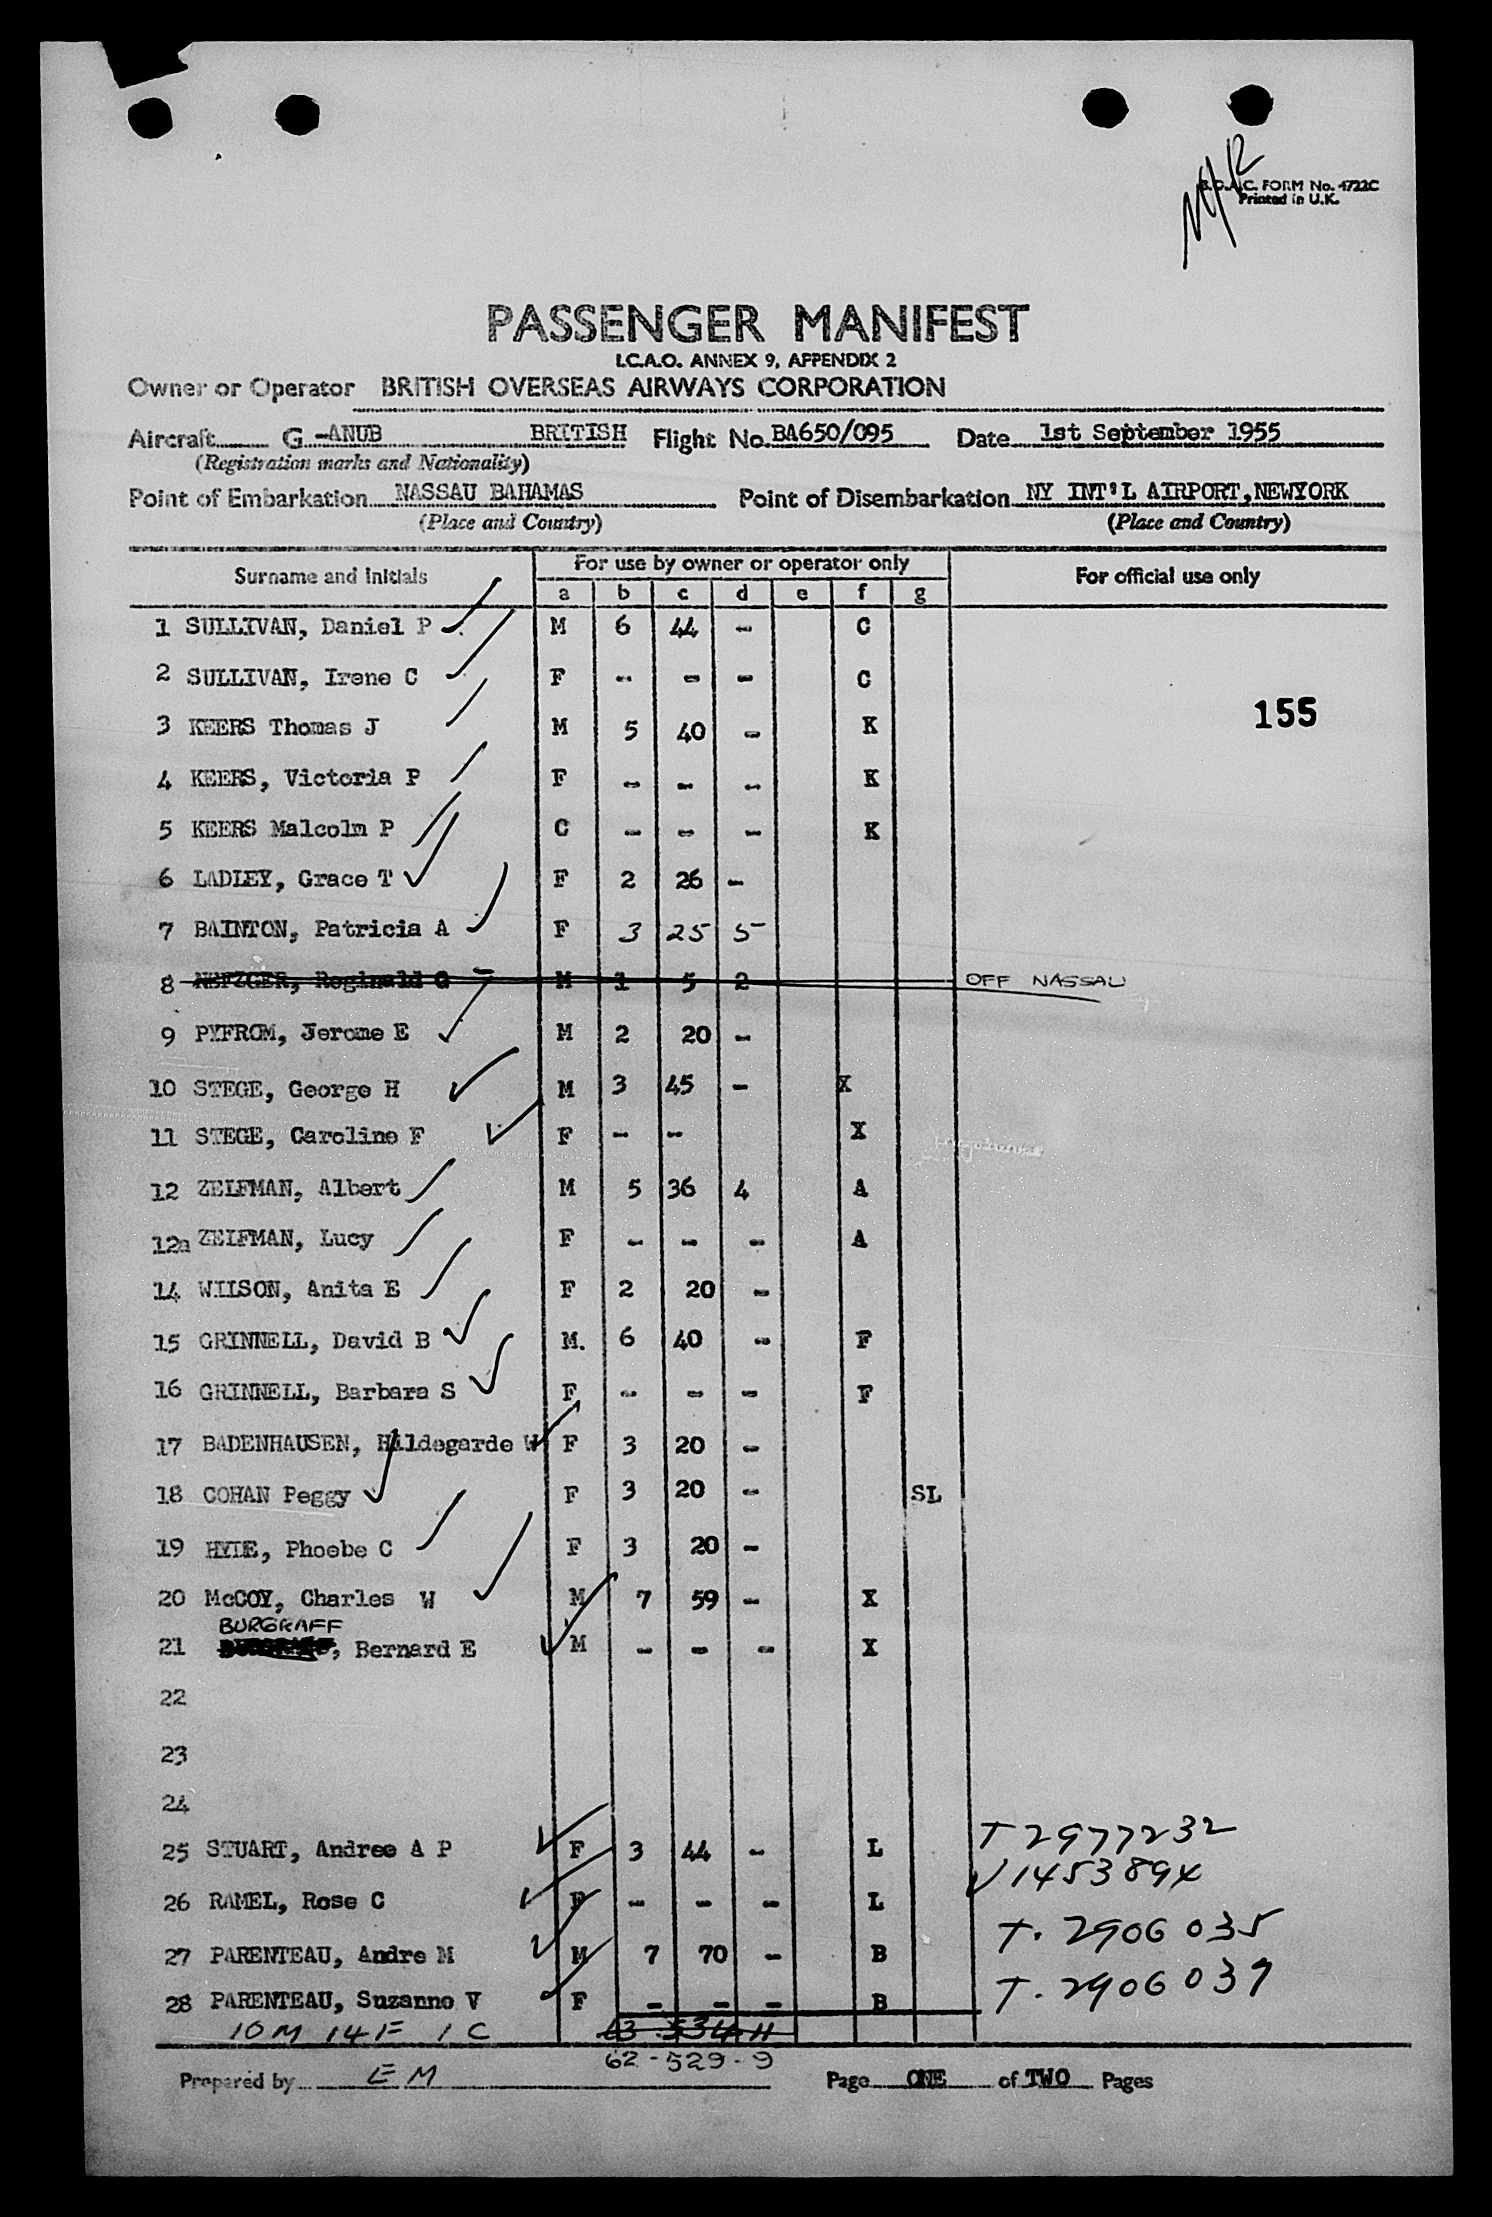 B.O.A.C. FORM No. 4722C
Printed in U.K.
PASSENGER MANIFEST
I.C.A.O. ANNEX 9, APPENDIX 2
Owner or Operator BRITISH OVERSEAS AIRWAYS CORPORATION
Aircraft G -ANUB BRITISH Flight No. BA650/095 Date 1st September 1955
(Registration marks and Nationality)
Point of Embarkation NASSAU BAHAMAS Point of Disembarkation NY INT'L AIRPORT, NEWYORK
(Place and Country) (Place and Country)
Surname and Initials For use by owner or operator only For official use only
a b c d e f g
1 SULLIVAN, Daniel P M 6 44 - C
2 SULLIVAN, Irene C F - - - C
155
3 KEERS Thomas J M 5 40 - K
4 KEERS, Victoria P F - - - K
5 KEERS Malcolm P C - - - K
6 LADLEY, Grace T F 2 26 -
7 BAINTON, Patricia A F 3 25 5
8 Reginald G M 1 5 2 OFF NASSAU
9 PYFROM, Jerome E M 2 20 -
10 STEGE, George H M 3 45 - X
11 STEGE, Caroline F F - - X
12 ZELFMAN, Albert M 5 36 4 A
12a ZELFMAN, Lucy F - - - A
14 WILSON, Anita E F 2 20 -
15 GRINNELL, David B M. 6 40 - F
16 GRINNELL, Barbara S F - - - F
17 BADENHAUSEN, Hildegarde W F 3 20 -
18 COHAN Peggy F 3 20 - SL
19 HYDE, Phoebe C F 3 20 -
20 McCOY, Charles W M 7 59 - X
BURGRAFF
21 , Bernard E M - - - X
22
23
24
25 STUART, Andree A P F 3 44 - L T2977232
26 RAMEL, Rose C F - - - L V1453894
27 PARENTEAU, Andre M M 7 70 - B T. 2906035
28 PARENTEAU, Suzanne V F - - - B T. 2906039
10 M 14 F 1 C 63 534 11
62 - 529 - 9
Prepared by EM Page ONE of TWO Pages